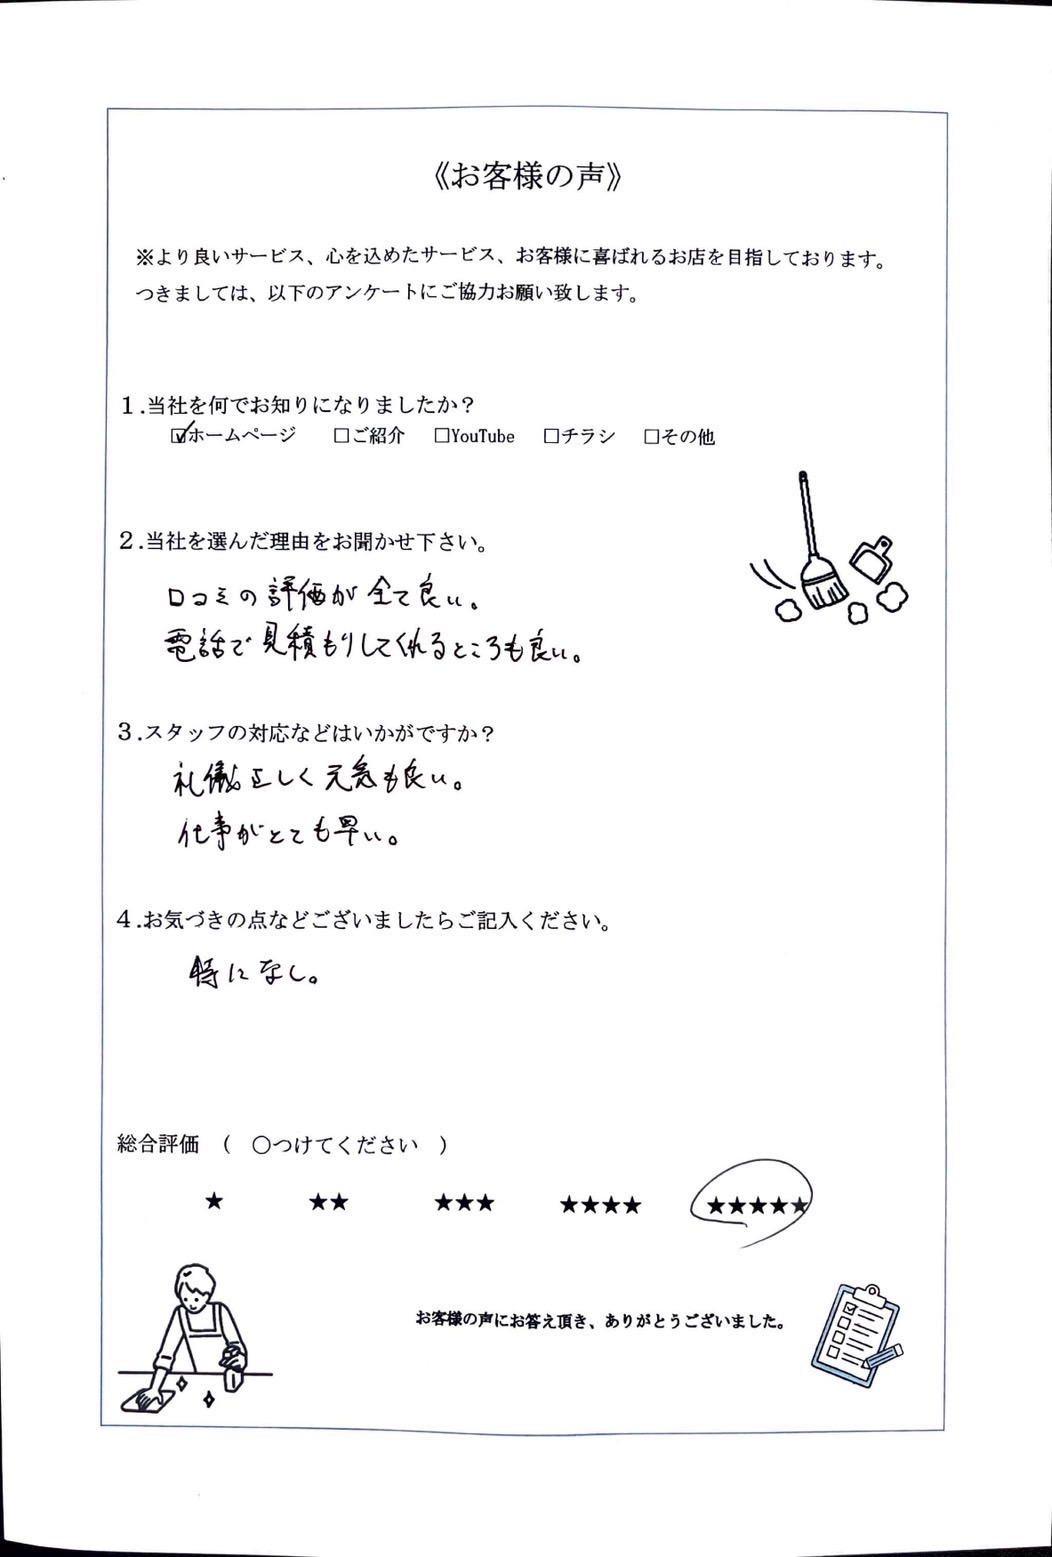 《お客様の声》
※より良いサービス、心を込めたサービス、お客様に喜ばれるお店を目指しております。
つきましては、以下のアンケートにご協力お願い致します。
１.当社を何でお知りになりましたか？
☑ホームページ　□ご紹介　□YouTube　□チラシ　□その他
２.当社を選んだ理由をお聞かせ下さい。
口コミの評価が全て良い。
電話で見積もりしてくれるところも良い。
３.スタッフの対応などはいかがですか？
礼儀正しく元気も良い。
仕事がとても早い。
４.お気づきの点などございましたらご記入ください。
特になし。
総合評価　（　○つけてください　）
★　★★　★★★　★★★★　★★★★★
お客様の声にお答え頂き、ありがとうございました。